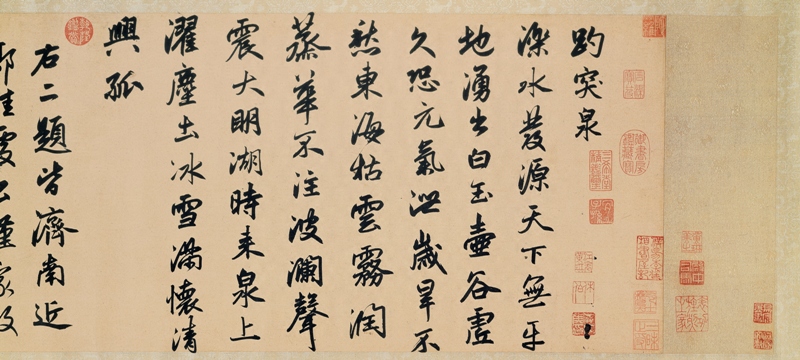 趵突泉
濼水發源天下無平
地湧出白玉壺谷虛
久恐元氣洩歲旱不
愁東海枯雲霧潤
蒸華不注波瀾聲
震大明湖時來泉上
濯塵土冰雪滿懷清
興孤
右二題皆濟南近
郭佳處公謹家